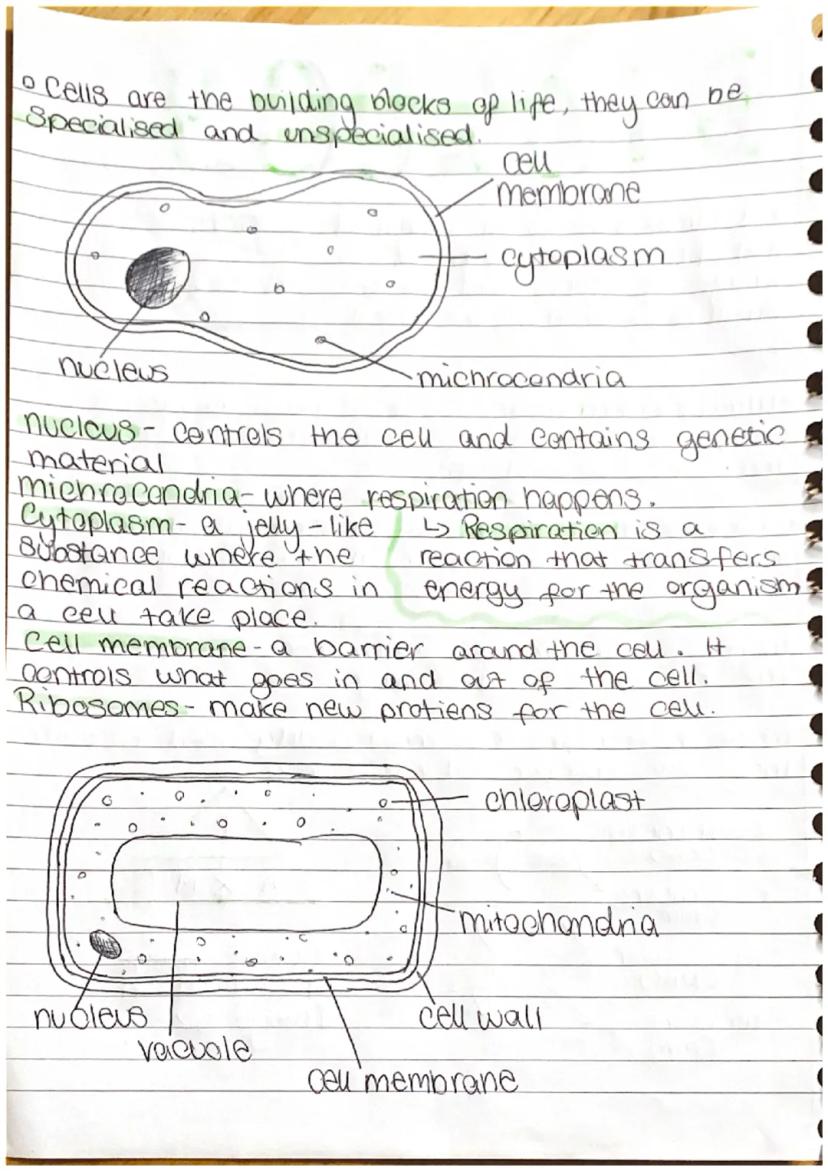 o Cells are the building blocks of life, they can be
specialised and unspecialised.
cell
membrane
cytoplasm
nucleus
michrocondria
nucleus - controls the cell and contains genetic
material
michrocondria - where respiration happens.
Cytoplasm - a jelly-like
substance where the
chemical reactions in
a cell take place.
↳ Respiration is a
reaction that transfers
energy for the organism
Cell membrane - a barrier around the cell. It
controls what goes in and out of the cell.
Ribosomes - make new protiens for the cell.
chloroplast
mitochondria
nucleus
cell wall
vacuole
cell membrane